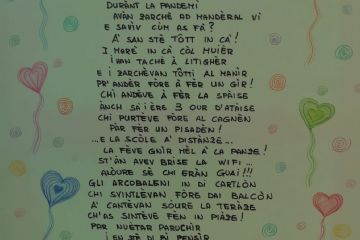 DURANT LA PANDEMI
AVÀN ZARCHÈ AD MANDERAL VÌ
E SAVÌV CÙM AS FÀ?
À SAN STÈ TÔTT IN CÀ!
I MARÈ IN CÀ CÔL MUIÈR
I HAN TACHÈ À LITIGHÈR
E I ZARCHÈVAN TÔTTI AL MANIR
PR'ANDÈR FÔRE À FÈR UN GÎR!
CHI ANDÈVE À FÈR LA SPÀISE
ÀNCH SA I ERE 3 OUR D'ATÀISE
CHI PURTÈVE FÔRE AL CAGNÈN
PAR FÈR UN PISADÈN!
...E LA SCÔLE À DISTÀNZE...
LA FÈVE GNÌR MÈL À LA PANZE!
ST'ÀN AVEV BRISE LA WIFI...
ALÔURE SÈ CHI ERÀN GUAI!!!
GLI ARCOBALENI IN DI CARTLÔN
CHI SVINTLÈVAN FÔRE DAI BALCÔN
À CANTÈVAN SÔURE LA TERÀZE
CH'AS SINTÈVE FÈN IN PIÀZE!
PAR NUÈTAR PARUCHÌR
I EN STÈ DÌ BÌ PENSÎR